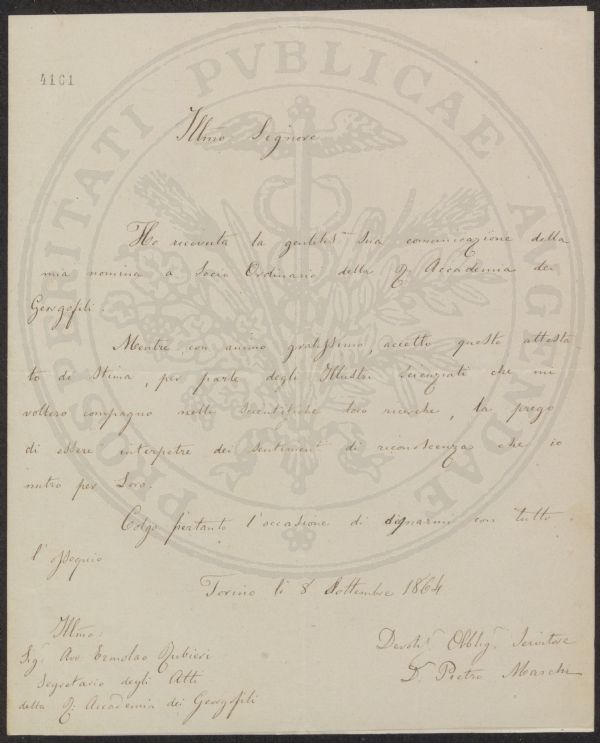 4101
PROSPERITATI PVBLICAE AVGENDAE
Illmo Signore
Ho ricevuta la gentiliss sua comunicazione della
mia nomina a Socio Ordinario della R. Accademia dei
Georgofili.
Mentre con animo gratissimo, accetto questo attesta
to di stima, per parte degli Illustri Scienziati che mi
vollero compagno nelle scientifiche loro ricerche, la prego
di essere interpetre dei sentimenti di riconoscenza che io
nutro per Loro.
Colgo pertanto l'occasione di dignarmi con tutto
l'ossequio
Torino li 8 Settembre 1864
Devotis. Obblig. Servitore
D. Pietro Marchi
Illmo
Sigr Avv. Ermolao Rubieri
Segretario degli Atti
della R. Accademia dei Georgofili